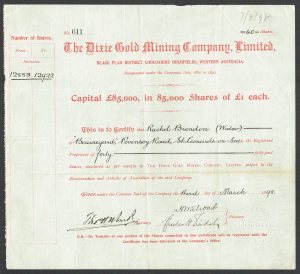 7/3/98
Number of Shares.
From
Inclusive
12553 12922
No. 611
40 Shares.
The Dixie Gold Mining Company, Limited,
BLACK FLAG DISTRICT, COOLGARDIE GOLDFIELDS, WESTERN AUSTRALIA.
Incorporated under the Companies Acts, 1862 to 1893.
Capital £85,000, in 85,000 Shares of £1 each.
This is to Certify that Rachel (Widow)
of Road, St Leonards-on-Sea is the Registered
Proprietor of forty fully paid
Shares, numbered as per margin in THE DIXIE GOLD MINING COMPANY, LIMITED, subject to the
Memorandum and Articles of Association of the said Company.
Given under the Common Seal of the Company the Third day of March 189
Directors.
Secretary.
N.B.—The Transfer of any portion of the Shares comprised in this Certificate will be registered until the
Certificate has been delivered at the Company's Office.